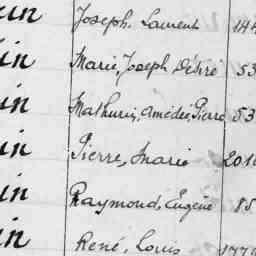 in Joseph, Laurent 144
in Marie, Joseph Désiré 53
in Mathurin, Amédée, Pierre 53
in Pierre, Marie 201
in Raymond, Eugène 85
in René, Louis 177